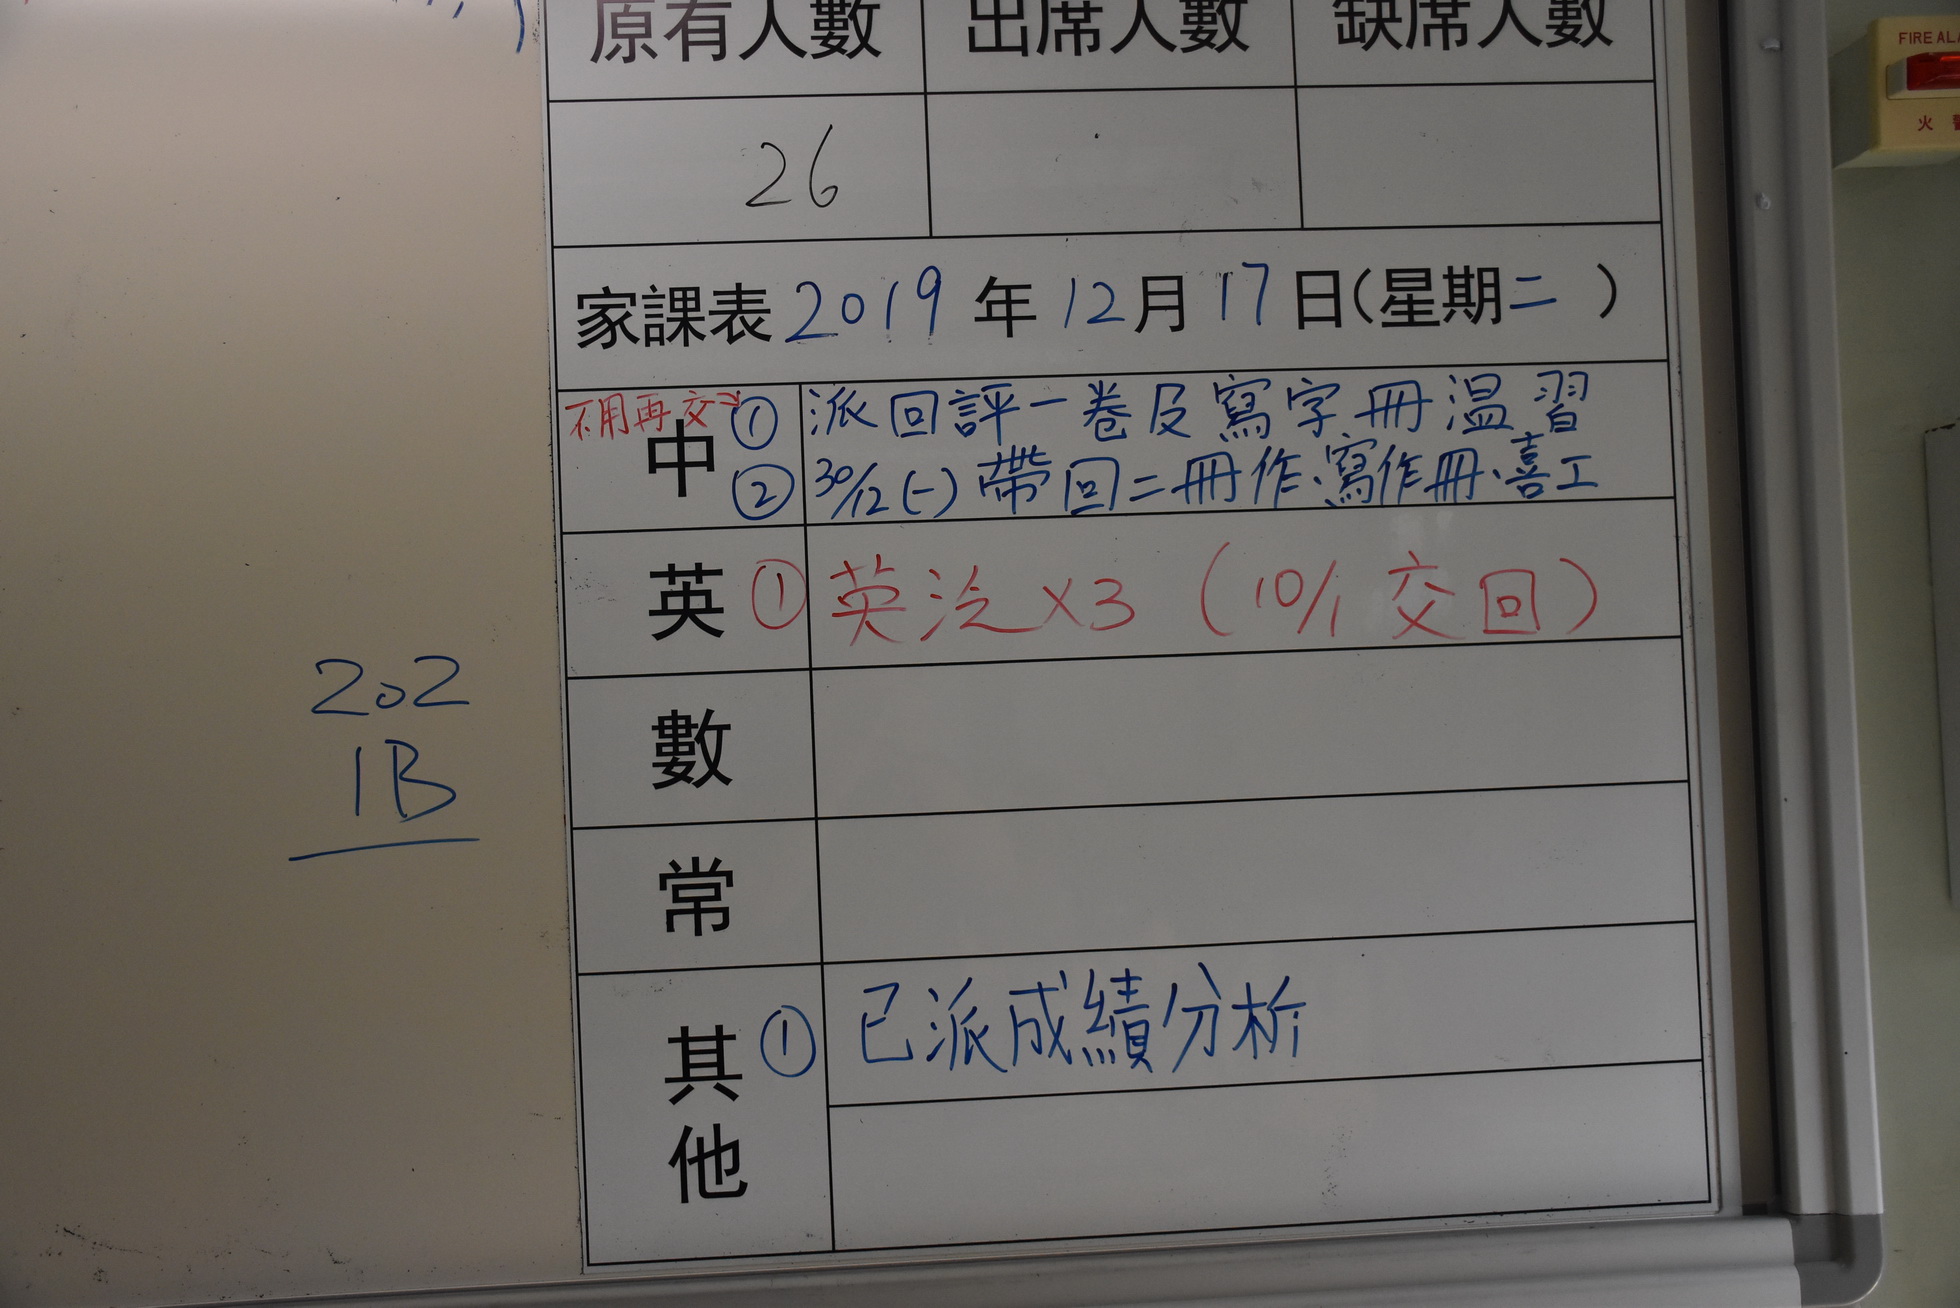 原有人數 出席人數 缺席人數
26
家課表 2019 年 12 月 17 日(星期二 )
不用再交
中 ① 派回評一卷及寫字冊温習
② 30/12 (一) 帶回二冊作、寫作冊、喜工
英 ① 英汔 x3 (10/1 交回)
數
常
其他 ① 已派成績分析
202
1B
FIRE ALA
火 警